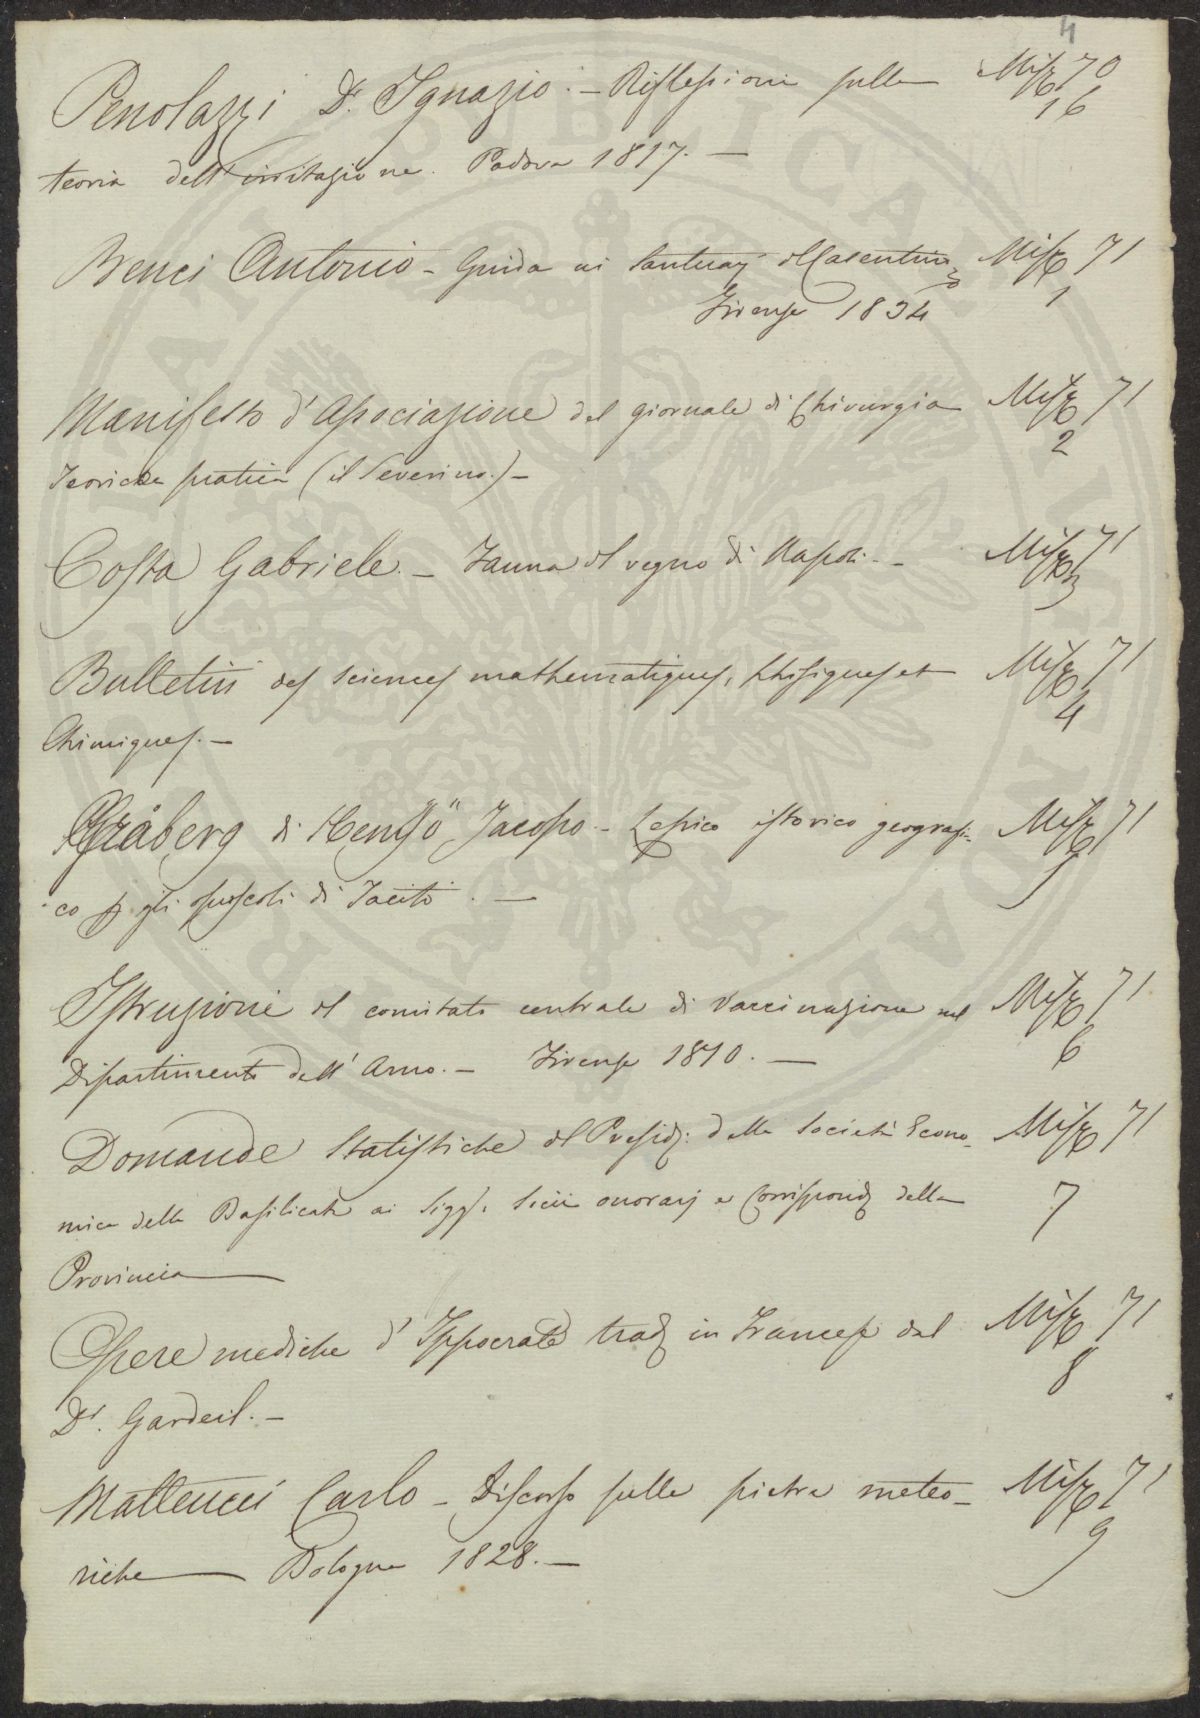 4
Penolazzi Dr. Ignazio. - Riflessioni sulla Misc 70
16
teoria dell'irritazione. Padova 1817. -
Benci Antonio - Guida ai Santuarj del Casentino Misc 71
1
Firenze 1834
Manifesto d'Associazione del giornale di Chirurgia Misc 71
2
Teorica pratica (il Severino.) -
Costa Gabriele. - Fauna del regno di Napoli. - Misc 71
3
Bulletin des sciences mathematiques, phisiques et Misc 71
4
Chimiques. -
Gråberg di Hemsö Jacopo - Lessico istorico geografi- Misc 71
5
co p gli opuscoli di Tacito. -
Istruzioni del comitato centrale di vaccinazione nel Misc 71
6
Dipartimento dell'Arno. - Firenze 1810. -
Domande Statistiche del Presid: della Società Econo- Misc 71
mica della Basilicata ai Sigg. Socii onorarj e Corrispond della 7
Provincia
Opere mediche d'Ippocrate trad in Francese dal Misc 71
8
Dr. Gardeil. -
Matteucci Carlo - Discorso sulle pietre meteo- Misc 71
9
riche Bologna 1828. -